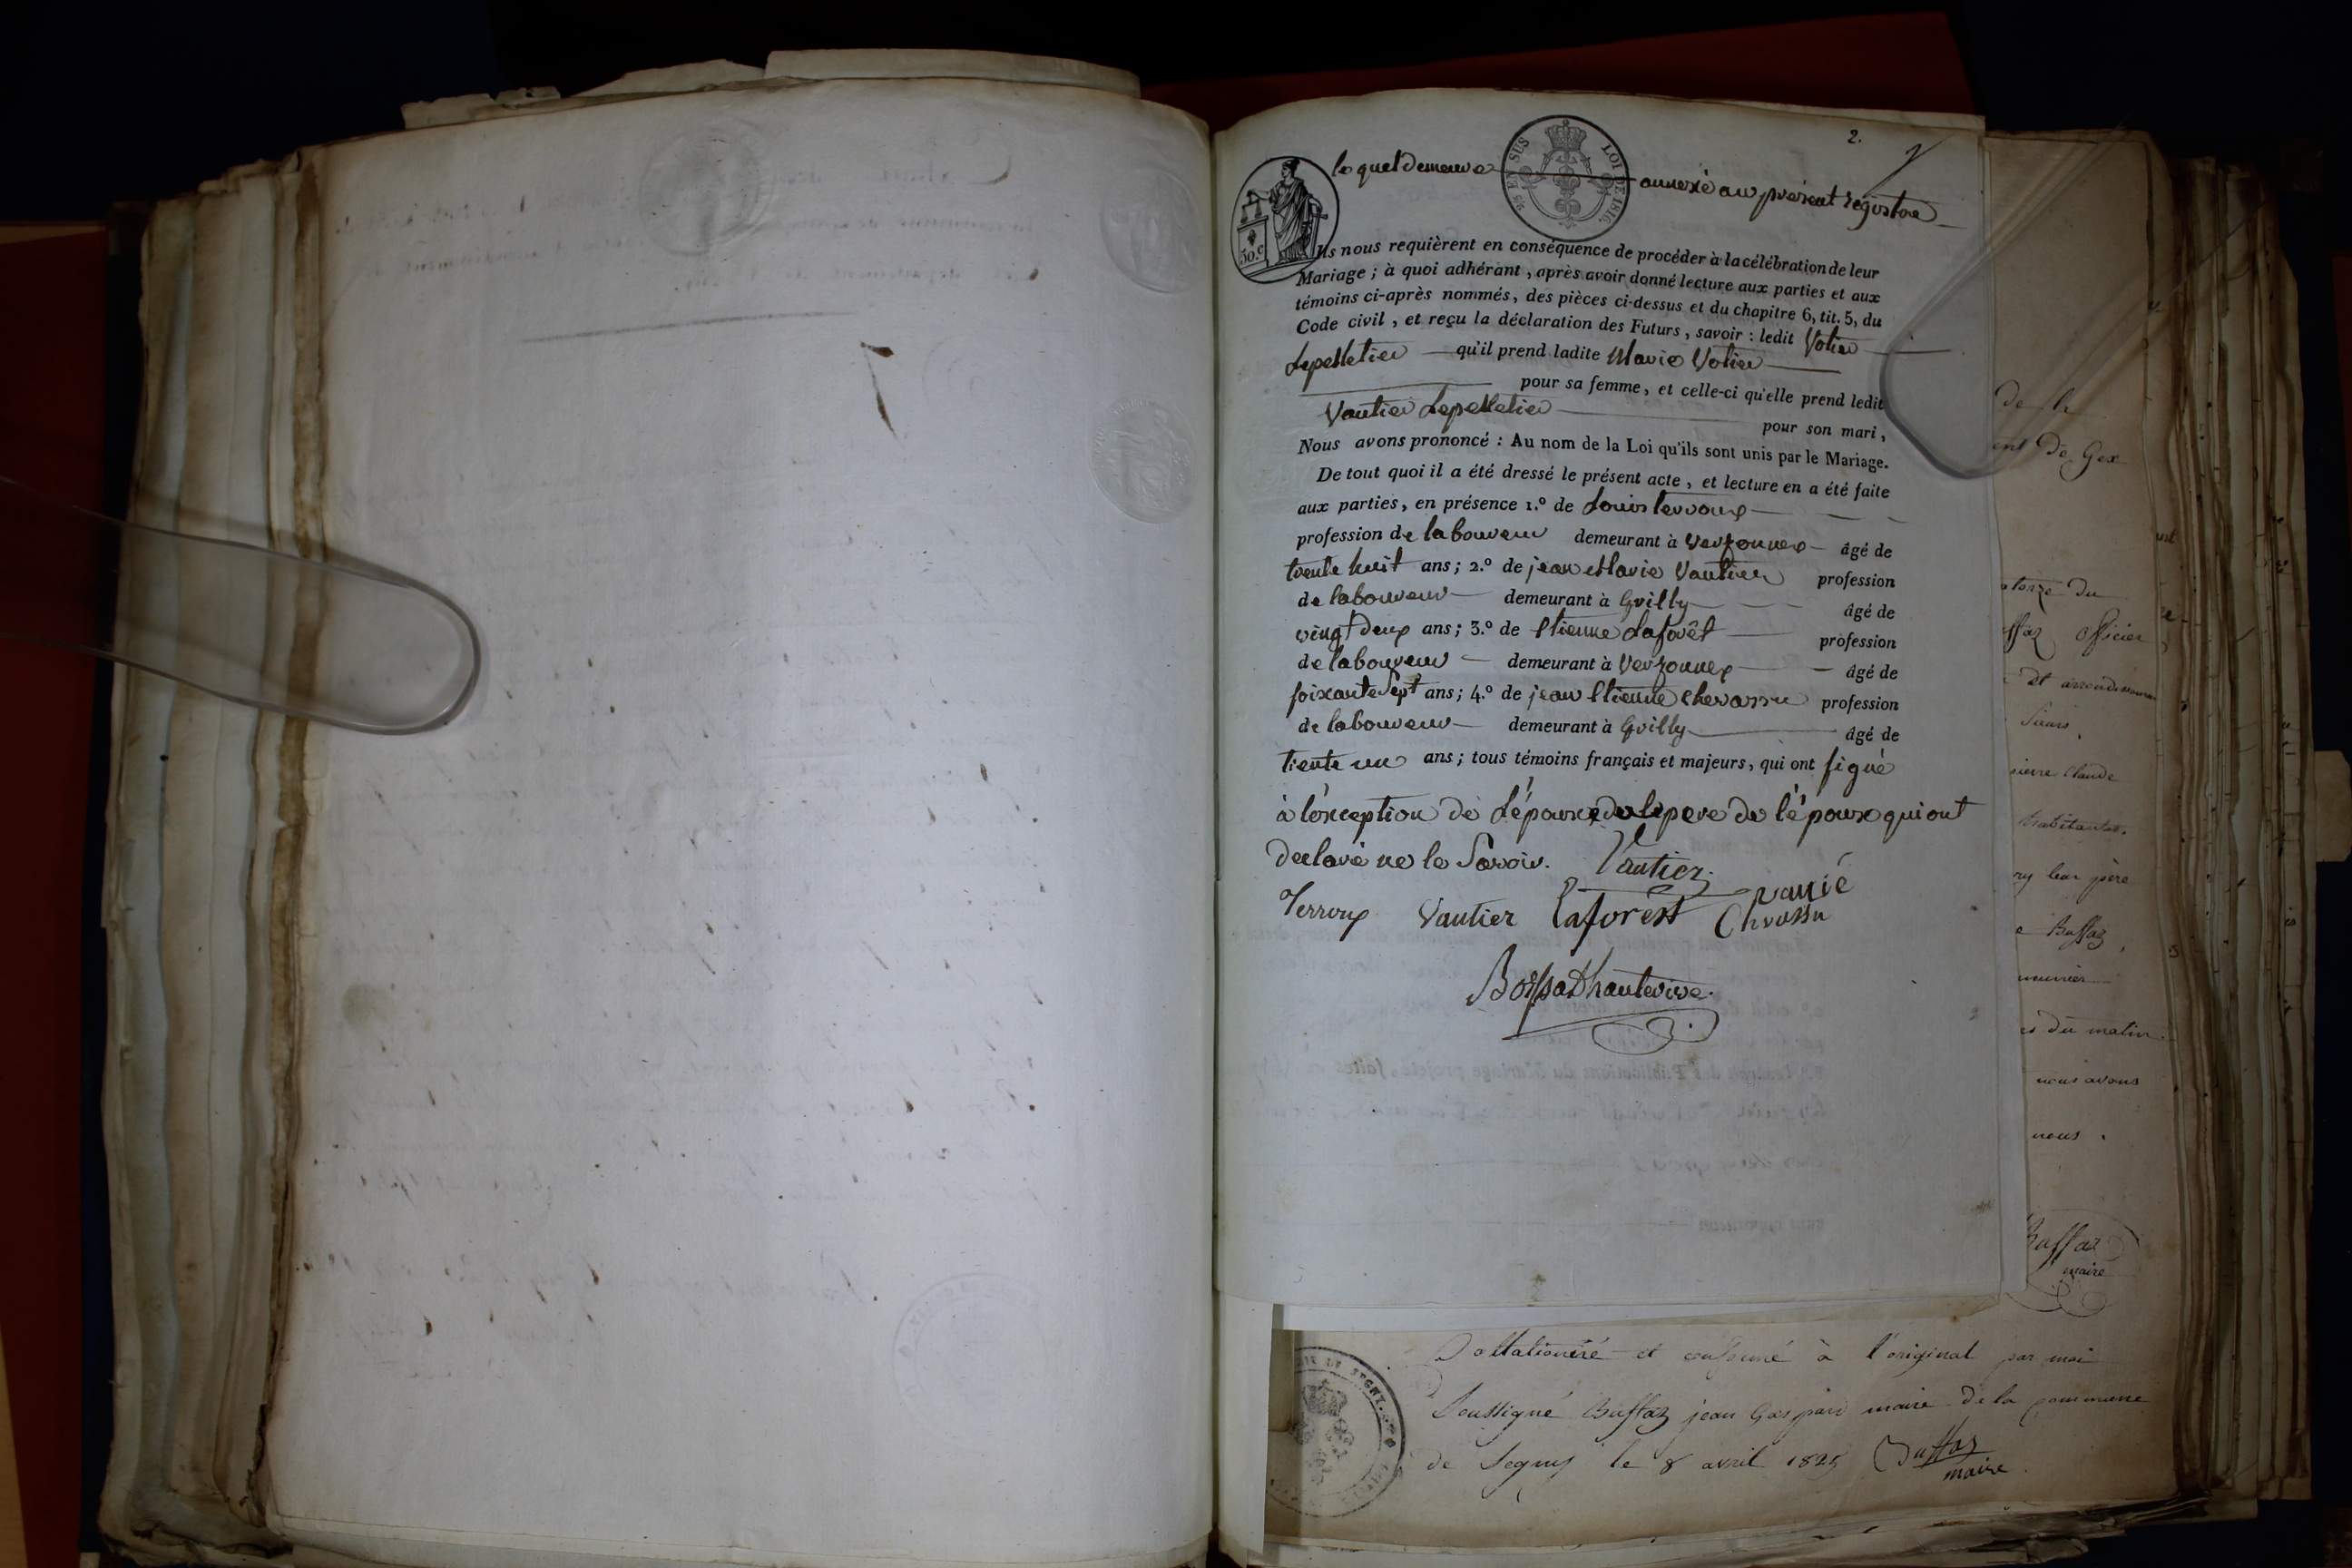 2.
le quel demeure annexé au présent registre
30.c
EN SUS LOI DE 1816.
Ils nous requièrent en conséquence de procéder à la célébration de leur
Mariage ; à quoi adhérant , après avoir donné lecture aux parties et aux
témoins ci-après nommés, des pièces ci-dessus et du chapitre 6, tit. 5, du
Code civil , et reçu la déclaration des Futurs , savoir : ledit Votier
Lepelletier qu'il prend ladite Marie Votier
pour sa femme, et celle-ci qu'elle prend ledit
Vautier Lepelletier
pour son mari,
Nous avons prononcé : Au nom de la Loi qu'ils sont unis par le Mariage.
De tout quoi il a été dressé le présent acte , et lecture en a été faite
aux parties, en présence 1.º de Louis terroux
profession de laboureur demeurant à Versonnex âgé de
trente huit ans ; 2.º de jean Marie Vautier profession
de laboureur demeurant à Grilly âgé de
vingt Deux ans ; 3.º de Etienne Laforêt profession
de laboureur demeurant à Versonnex âgé de
soixante Sept ans ; 4.º de jean Etienne chevassu profession
de laboureur demeurant à Grilly âgé de
trente un ans ; tous témoins français et majeurs, qui ont signé
à l'exception de L'épouse de le pere de l'époux qui ont
declaré ne le Savoir. Vautier
Terroux Vautier Laforest Chvassu
de la
ent de Gex
atorze du
ffaz Officier
Dt arrondissement
Sieurs
pierre Claude
habitants
leur père
e Buffaz
es du matin
nous avons
nous .
Buffaz
maire
et conformé à l'original par moi
Soussigné Buffaz jean Gaspard maire de la commune
de Segny le 8 avril 1825 Buffaz
maire